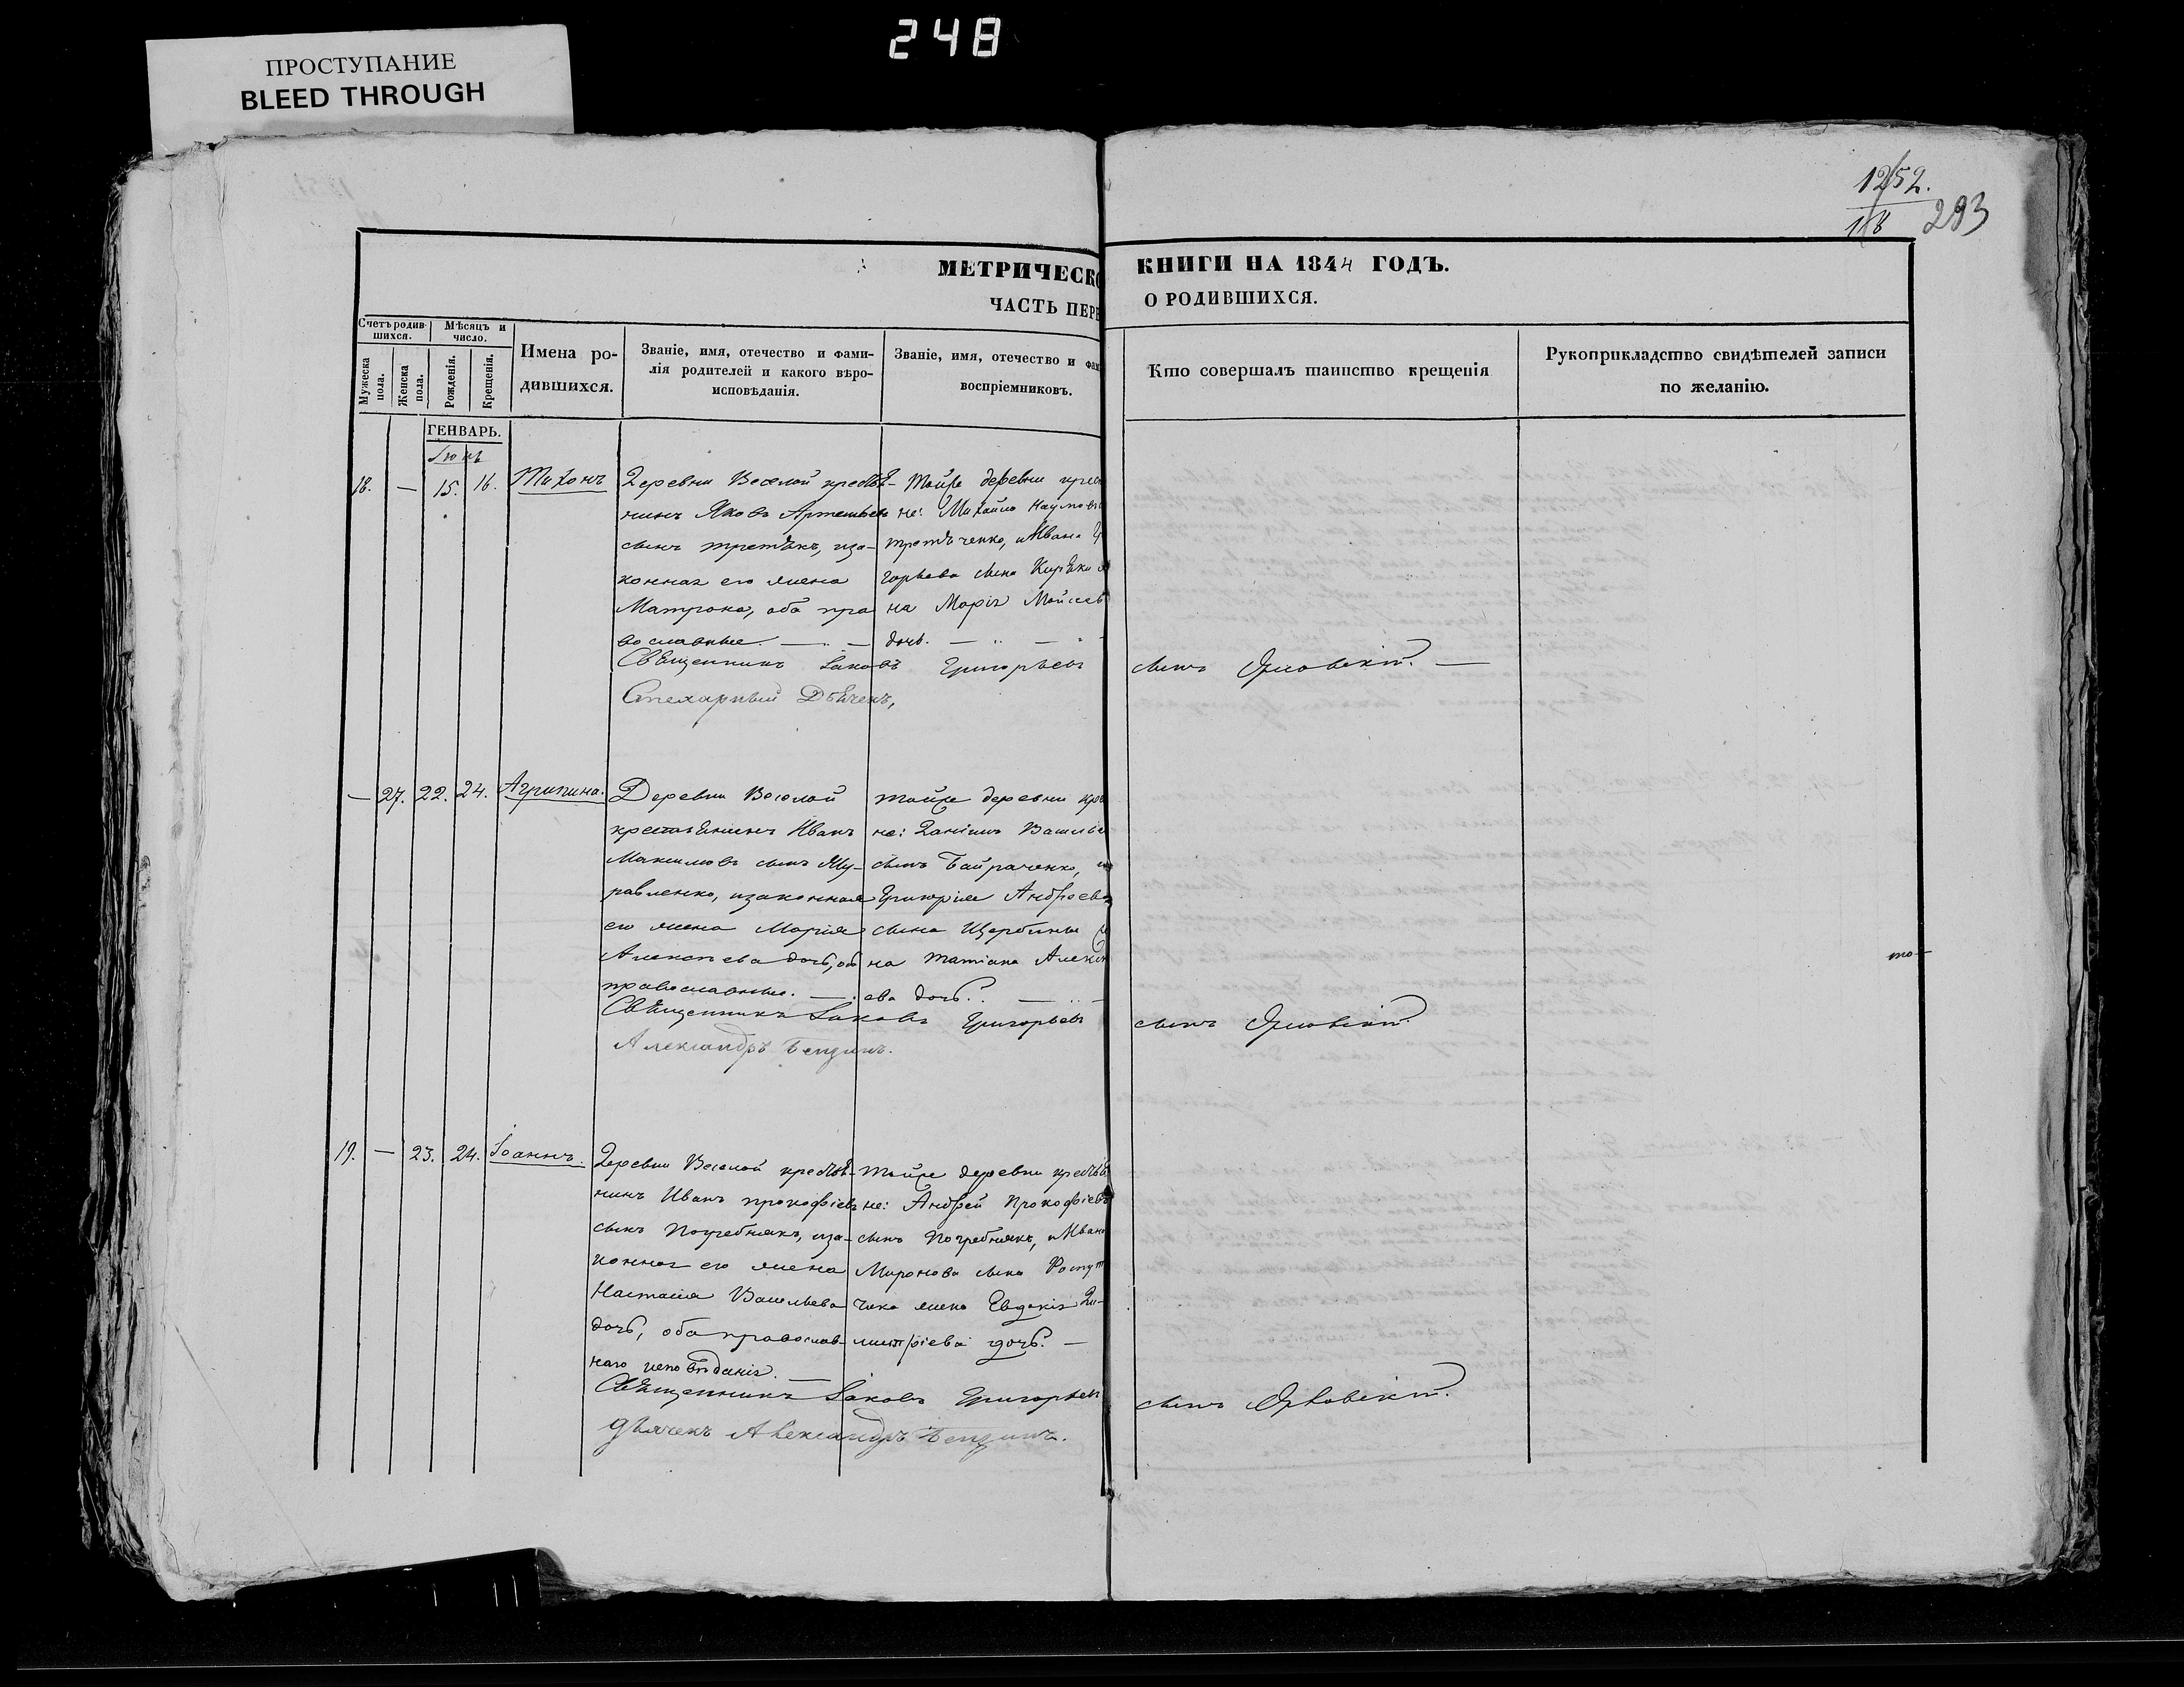 248
ПРОСТУПАНИЕ
BLEED THROUGH
1252.
18
293
МЕТРИЧЕСКО КНИГИ НА 1844 ГОДЪ.
ЧАСТЬ ПЕРВ О РОДИВШИХСЯ.
Счетъ родив-
шихся.
Мѣсяцъ и
число.
Мужеска
пола.
Женска
пола.
Рожденія.
Крещенія.
Имена ро-
дившихся.
Званіе, имя, отечество и фами-
лія родителей и какого вѣро-
исповѣданія.
Званіе, имя, отечество и фам
воспріемниковъ.
Кто совершалъ таинство крещенія
Рукоприкладство свидѣтелей записи
по желанію.
ГЕНВАРЬ.
Іюнь
18. — 15. 16. Тихонъ
Деревни Веселой крестья-
нинъ Яковъ Артемьевъ
сынъ третякъ, иза-
конная его жена
Матрона, оба пра
вославные. —
Тойже деревни крес
не: Михайло Наумовъ
третьченко, и Ивана Гр
горьева сына Кирѣки
на Марія Моисеев
дочь. —
Священникъ Іаковъ Григорьевъ сынъ Орловскій. —
Стихарный Дьячекъ,
— 27. 22. 24. Агрипина.
Деревни Веселой
крестьянинъ Иванъ
Максимовъ сынъ Жу-
равленко, и законная
его жена Марія
Алексѣева дочь, об
православные. —
тойже деревни кре
не: Даніилъ Василье
сынъ Байраченко, и
Григорія Андреева
сына Щербины
на Татіана Алексѣ
ева дочь. —
то—
Священникъ Іаковъ Григорьевъ сынъ Орловскій.
Александръ Бендинъ.
19. — 23. 24. Іоаннъ.
Деревни Веселой крестья-
нинъ Иванъ прокофіевъ
сынъ Погребнякъ, иза-
конная его жена
Настасія Васильева
дочь, оба православ-
наго исповѣданія. —
Тойже деревни крестья
не: Андрей Прокофіевъ
сынъ Погребнякъ, и Ивана
Миронова сына
чика жена Евдокія Ди-
митріева дочь. —
Священникъ Іаковъ Григорьевъ сынъ Орловскій.
дьячекъ Александръ Бендинъ.